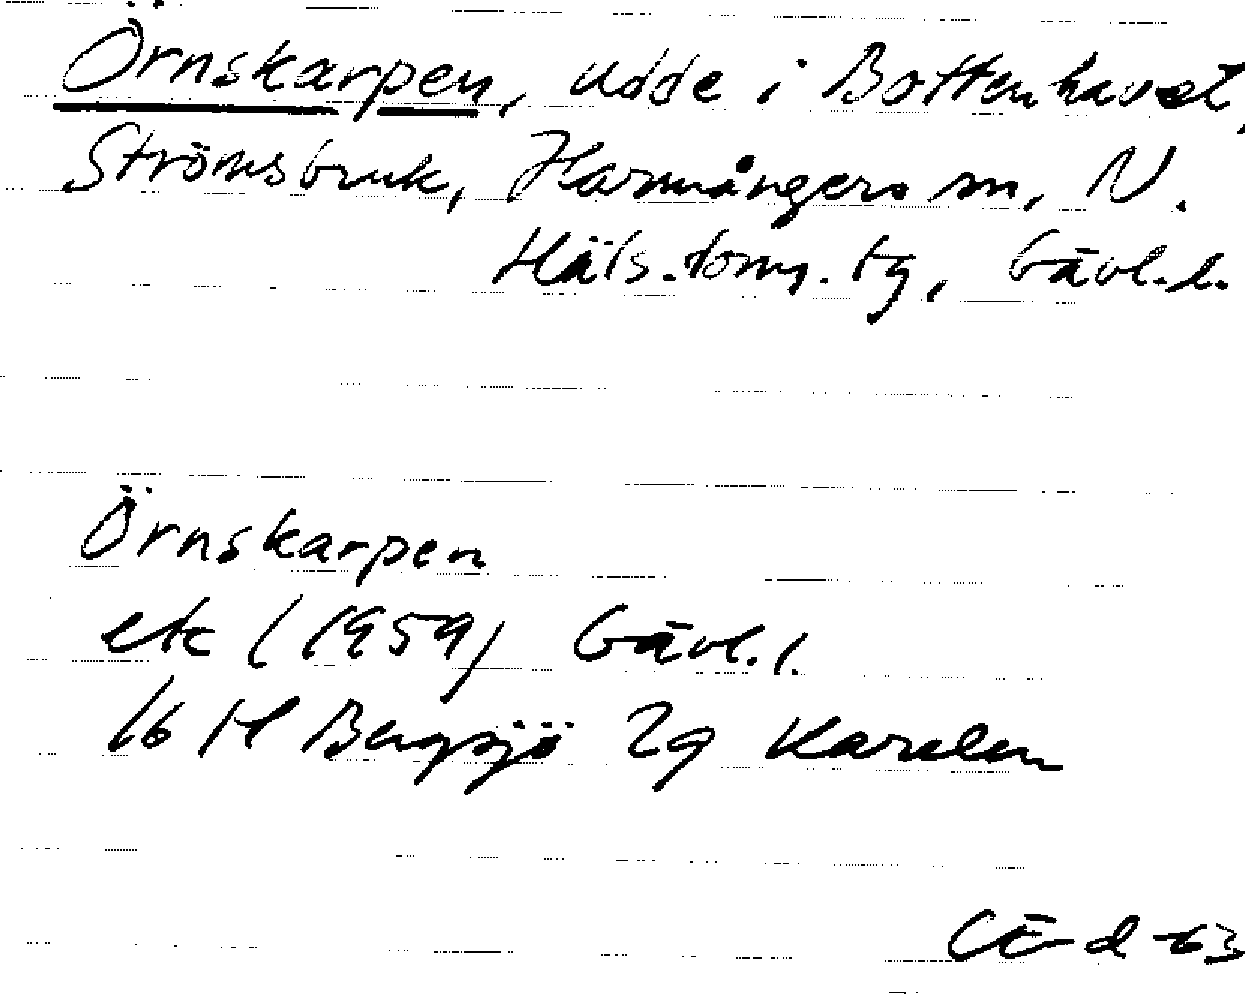 Örnskarpen, udde i Bottenhavet,
Strömsbruk, Harmångers sn, N.
Häls. doms. tg, Gävl. l.
Örnskarpen
ek (1959) Gävl. l.
16 H Bergsjö 2g Karalen
CE-d -63